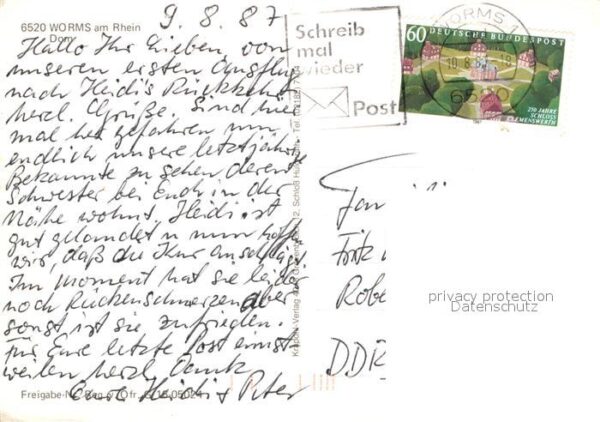 6520 WORMS am Rhein
Dom
9. 8. 87
Hallo Ihr Lieben, von
unseren ersten Ausflug
nach Heidi's Rückkehr
herzl. Grüße. Sind hier
mal her gefahren um
endlich unsere letztjährige
Bekannte zu sehen, deren
Schwester bei Euch in der
Nähe wohnt. Heidi ist
gut gelandet u. nun hoffen
wir, daß die Kur anschlägt.
Im Moment hat sie leider
noch Rückenschmerzen aber
sonst ist sie zufrieden.
Für Eure letzte Post einst
weilen herzl. Dank
Eure Heidi + Peter
Freigabe-Nr. Reg.
Schreib
mal
wieder
Post
WORMS 1
60 DEUTSCHE BUNDESPOST
250 JAHRE
SCHLOSS
CLEMENSWERTH
Fam
Fritz
Robe
DDR
privacy protection
Datenschutz